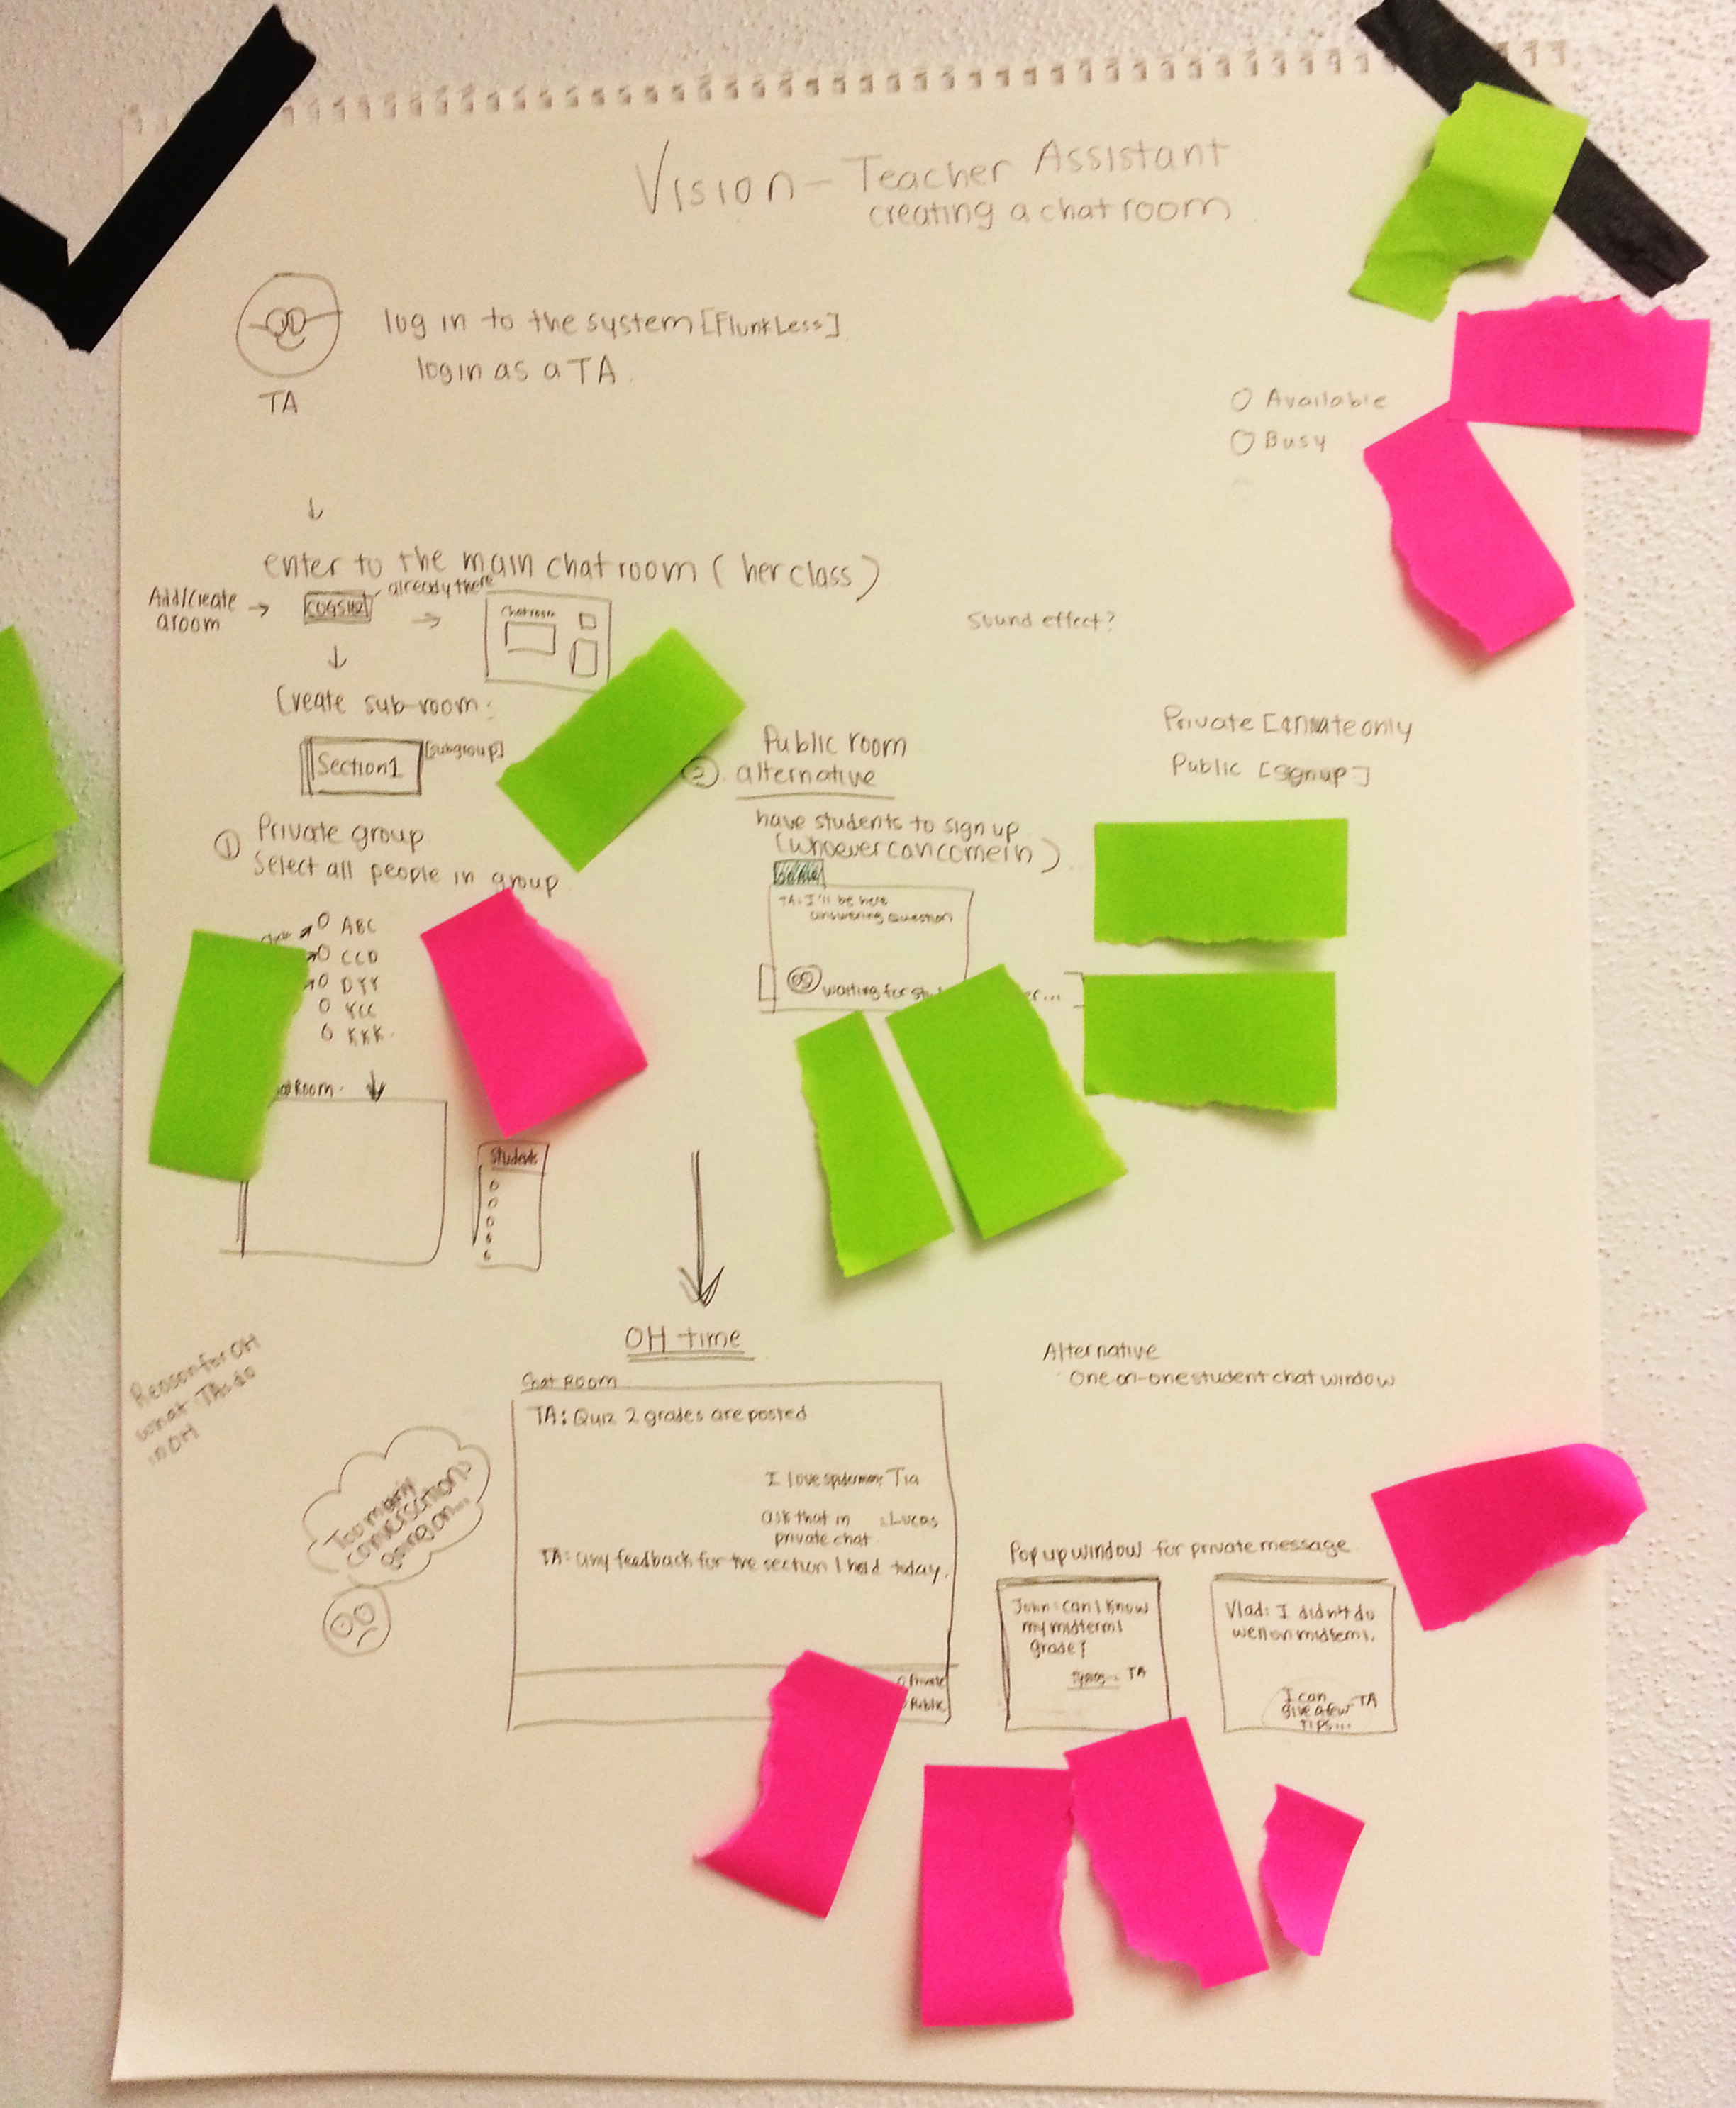 Vision - Teacher Assistant
creating a chat room
log in to the system [FlunkLess]
login as a TA.
TA
O Available
O Busy
enter to the main chat room (her class)
already there
Add/create
a room
COGS112
Chatroom
Sound effect?
Create sub-room:
Section1
[subgroup]
① Private group
Select all people in group
ABC
CCD
DYY
YCC
KKK
Room
Students
Public room
② alternative
have students to sign up
(whoever can come in)
TA: I'll be here
answering question
waiting for
Private [ only
Public [sign up]
OH time
Reason for OH
what TAs do
in OH
Too many
conversations
going on...
Chat Room
TA: Quiz 2 grades are posted
I love spiderman: Tia
ask that in : Lucas
private chat
TA: any feedback for the section I held today.
Private
Public
Alternative
One-on-one student chat window
Pop up window for private message
John: can I know
my midterm1
grade?
- TA
Vlad: I didn't do
well on midterm1.
I can -TA
give a few
tips...